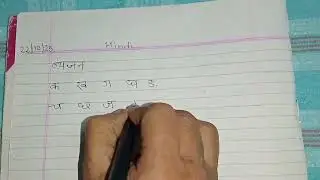 22/10/25 Hindi
व्यजन
क ख ग घ ङ
च छ ज